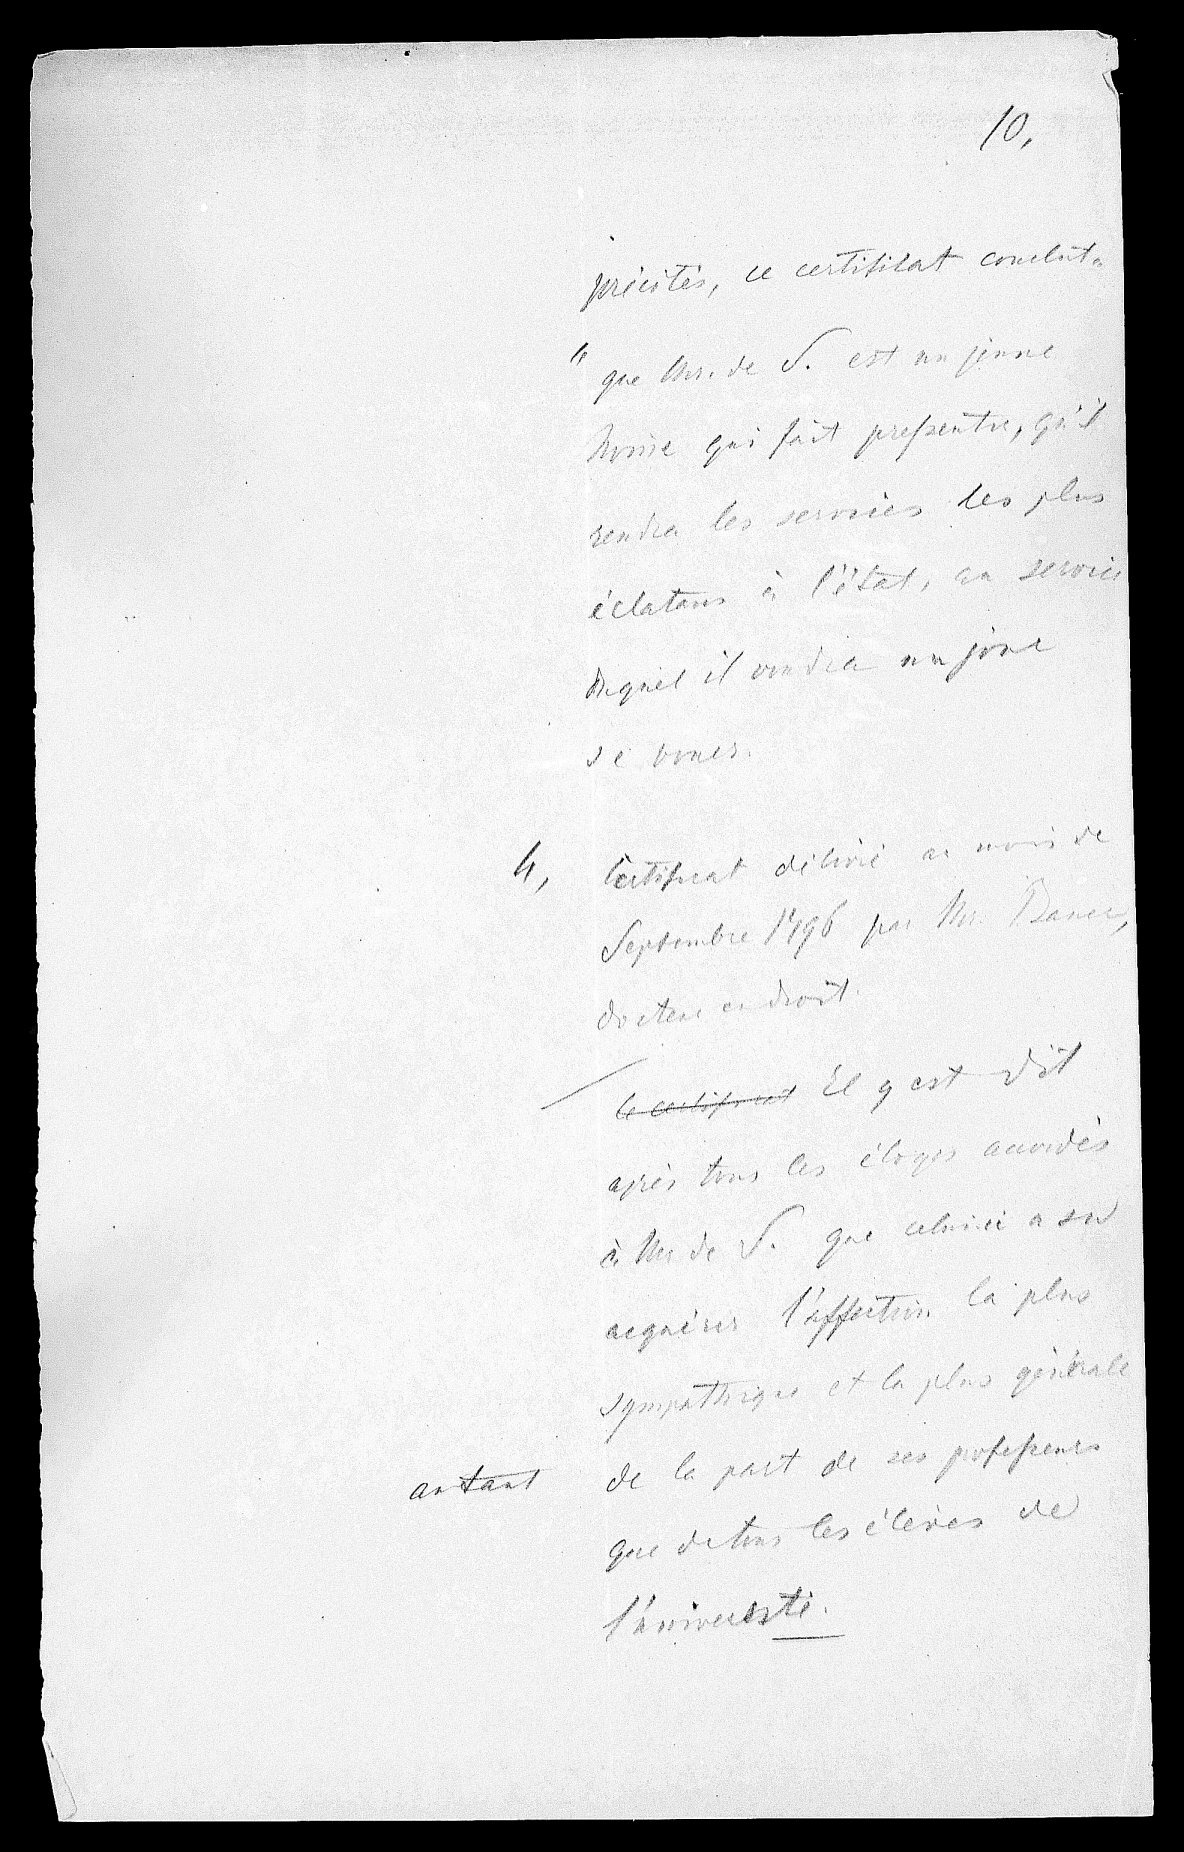 10,
précités, ce certificat conclut„
" que Mr. de S. est un jeune
home qui fait pressentir, qu'il
rendra les services les plus
éclatans à l'état, au service
duquel il voudra un jour
se vouer.
4, Certificat délivré au mois de
Septembre 1796 par Mr. Bauer,
docteur en droit.
le certificat Il y est dit
après tous les éloges accordés
à Mr de S. que celui ci a su
acquérir l'affection la plus
sympathique et la plus générale
autant de la part de ses professeurs
que de tous les élèves de
l'université.